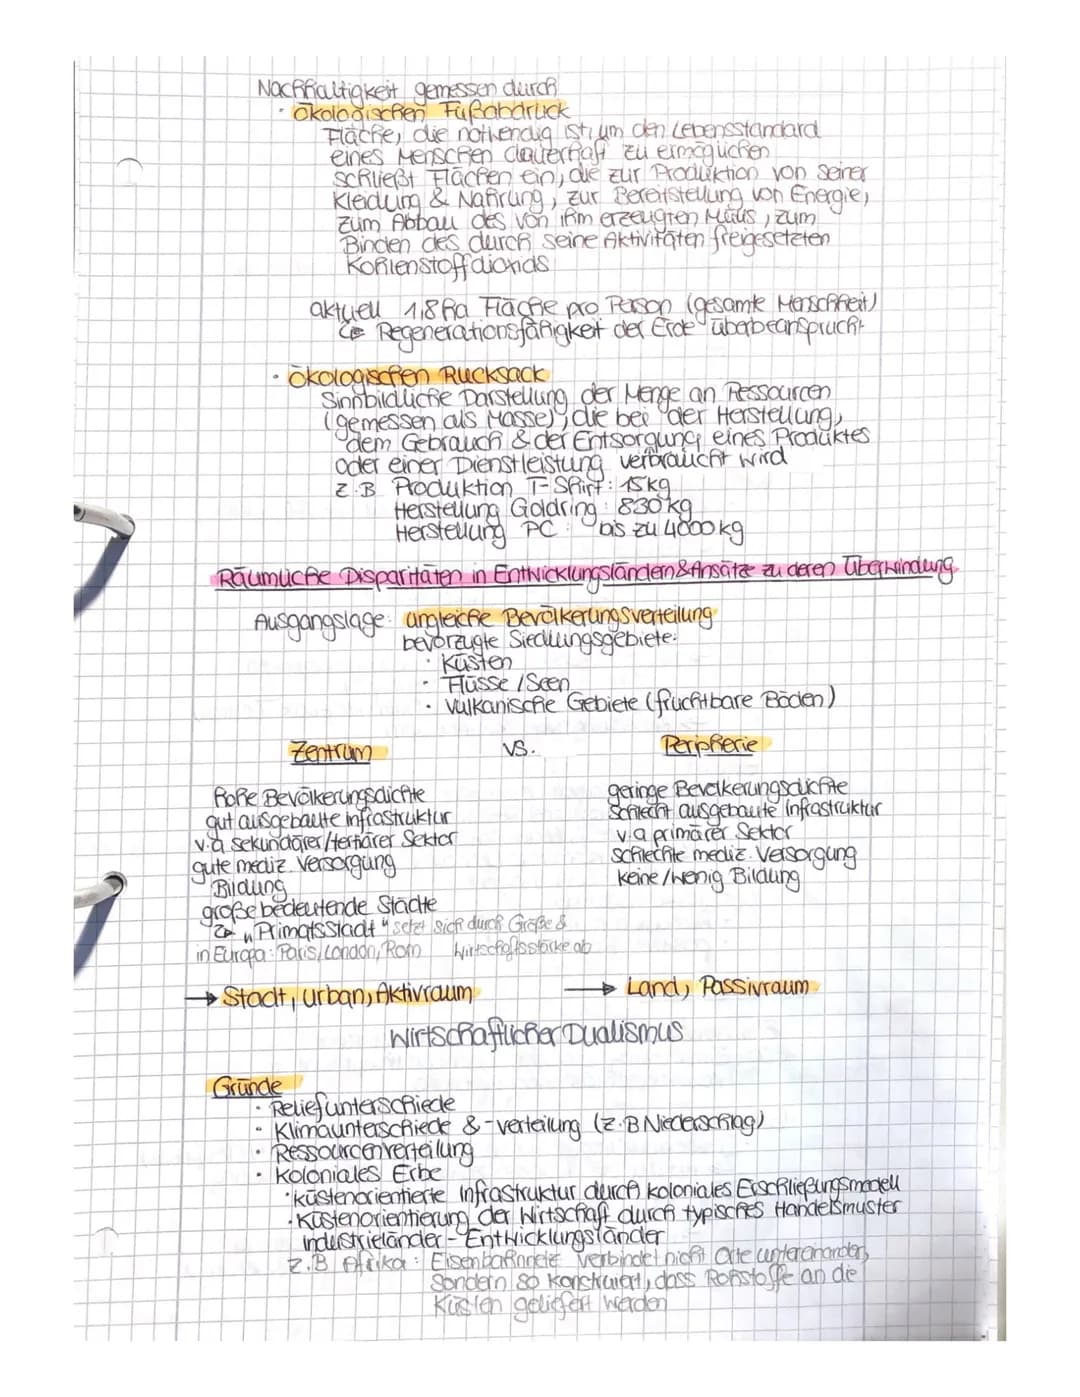 Nachhaltigkeit gemessen durch
· ökologischen Fußabdruck
Fläche, die notwendig ist, um den Lebensstandard
eines Menschen dauerhaft zu ermöglichen
schließt Flächen ein, die zur Produktion von seiner
Kleidung & Nahrung, zur Bereitstellung von Energie,
zum Abbau des von ihm erzeugten Mülls, zum
Binden des durch seine Aktivitäten freigesetzten
Kohlenstoffdioxids
aktuell 1,8ha Fläche pro Person (gesamte Menschheit)
↳ Regenerationsfähigkeit der Erde überbeansprucht
· ökologischen Rucksack
Sinnbildliche Darstellung der Menge an Ressourcen
(gemessen als Masse), die bei der Herstellung,
dem Gebrauch & der Entsorgung eines Produktes
oder einer Dienstleistung verbraucht wird
z.B Produktion T-Shirt: 15kg
Herstellung Goldring: 830kg
Herstellung PC: bis zu 4000kg
Räumliche Disparitäten in Entwicklungsländern & Ansätze zu deren Überwindung
Ausgangslage: ungleiche Bevölkerungsverteilung
bevorzugte Siedlungsgebiete:
· Küsten
· Flüsse / Seen
· Vulkanische Gebiete (fruchtbare Böden)
Zentrum vs. Peripherie
hohe Bevölkerungsdichte
gut ausgebaute Infrastruktur
v.a sekundärer/tertiärer Sektor
gute mediz. Versorgung
Bildung
große bedeutende Städte
↳ "Primatsstadt" setzt sich durch Größe &
in Europa: Paris, London, Rom Wirtschaftsstärke ab
geringe Bevölkerungsdichte
schlecht ausgebaute Infrastruktur
v.a primärer Sektor
schlechte mediz. Versorgung
keine/wenig Bildung
→ Stadt, urban, Aktivraum
→ Land, Passivraum
Wirtschaftlicher Dualismus
Gründe
· Reliefunterschiede
· Klimaunterschiede & -verteilung (z.B Niederschlag)
· Ressourcenverteilung
· Koloniales Erbe
· küstenorientierte Infrastruktur durch koloniales Erschließungsmodell
· Küstenorientierung der Wirtschaft durch typisches Handelsmuster
Industrieländer - Entwicklungsländer
z.B Afrika: Eisenbahnnetz verbindet nicht Orte untereinander,
sondern so konstruiert, dass Rohstoffe an die
Küsten geliefert werden